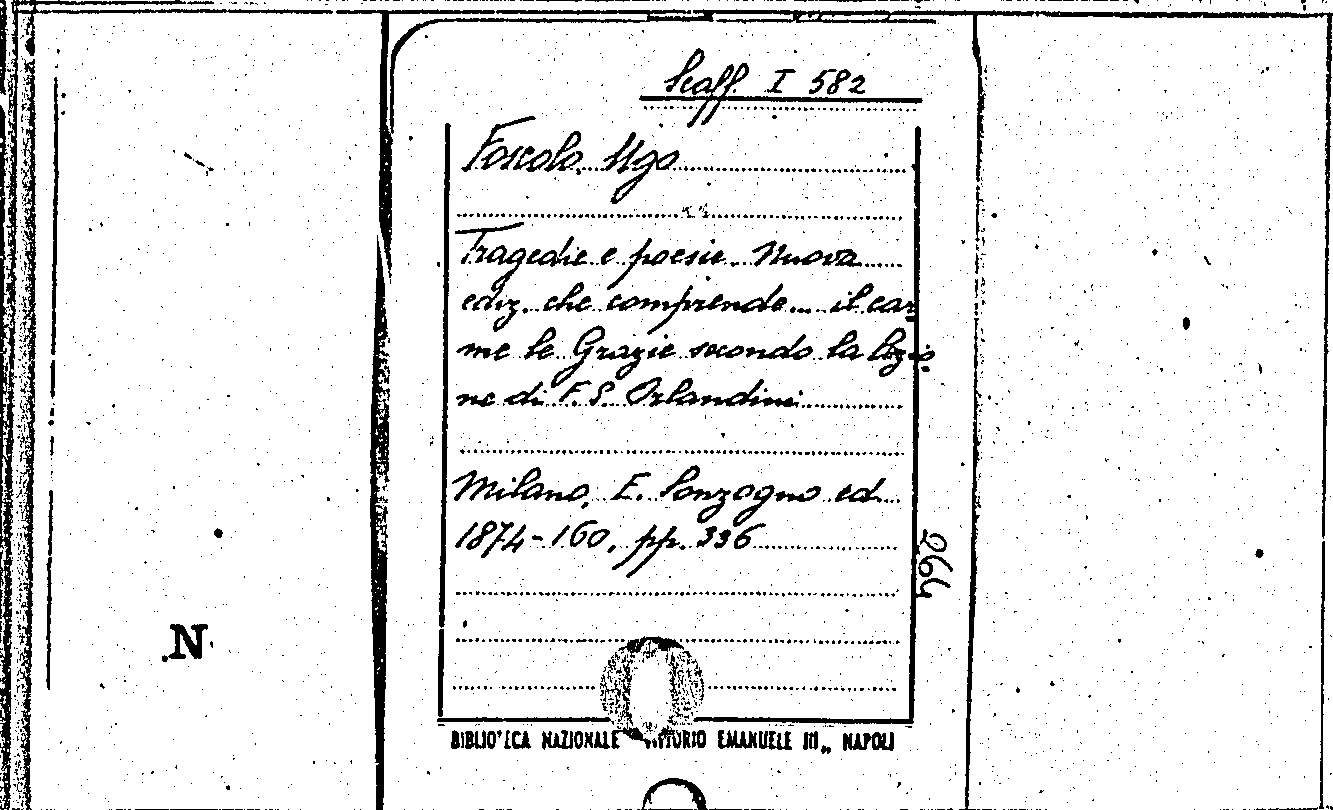 Scaff. I 582
Foscolo, Ugo
Tragedie e poesie. Nuova
ediz. che comprende... il car
me le Grazie secondo la lezio
ne di F. S. Orlandini
Milano, E. Sonzogno ed.
1874-160, pp. 336
264
N
BIBLIOTECA NAZIONALE "VITTORIO EMANUELE III„ NAPOLI